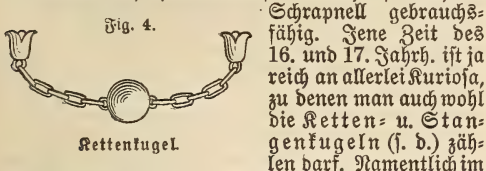 Fig. 4.
Kettenkugel.
Schrapnell gebrauchs=
fähig. Jene Zeit des
16. und 17. Jahrh. ist ja
reich an allerlei Kuriosa,
zu denen man auch wohl
die Ketten= u. Stan=
genkugeln (s. d.) zäh=
len darf. Namentlich im